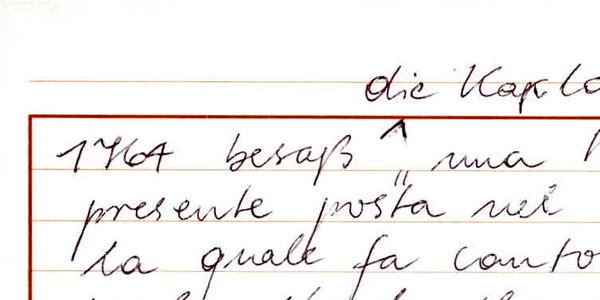 die Kapla
1764 besaß „una
presente posta nei
la quale fa canto